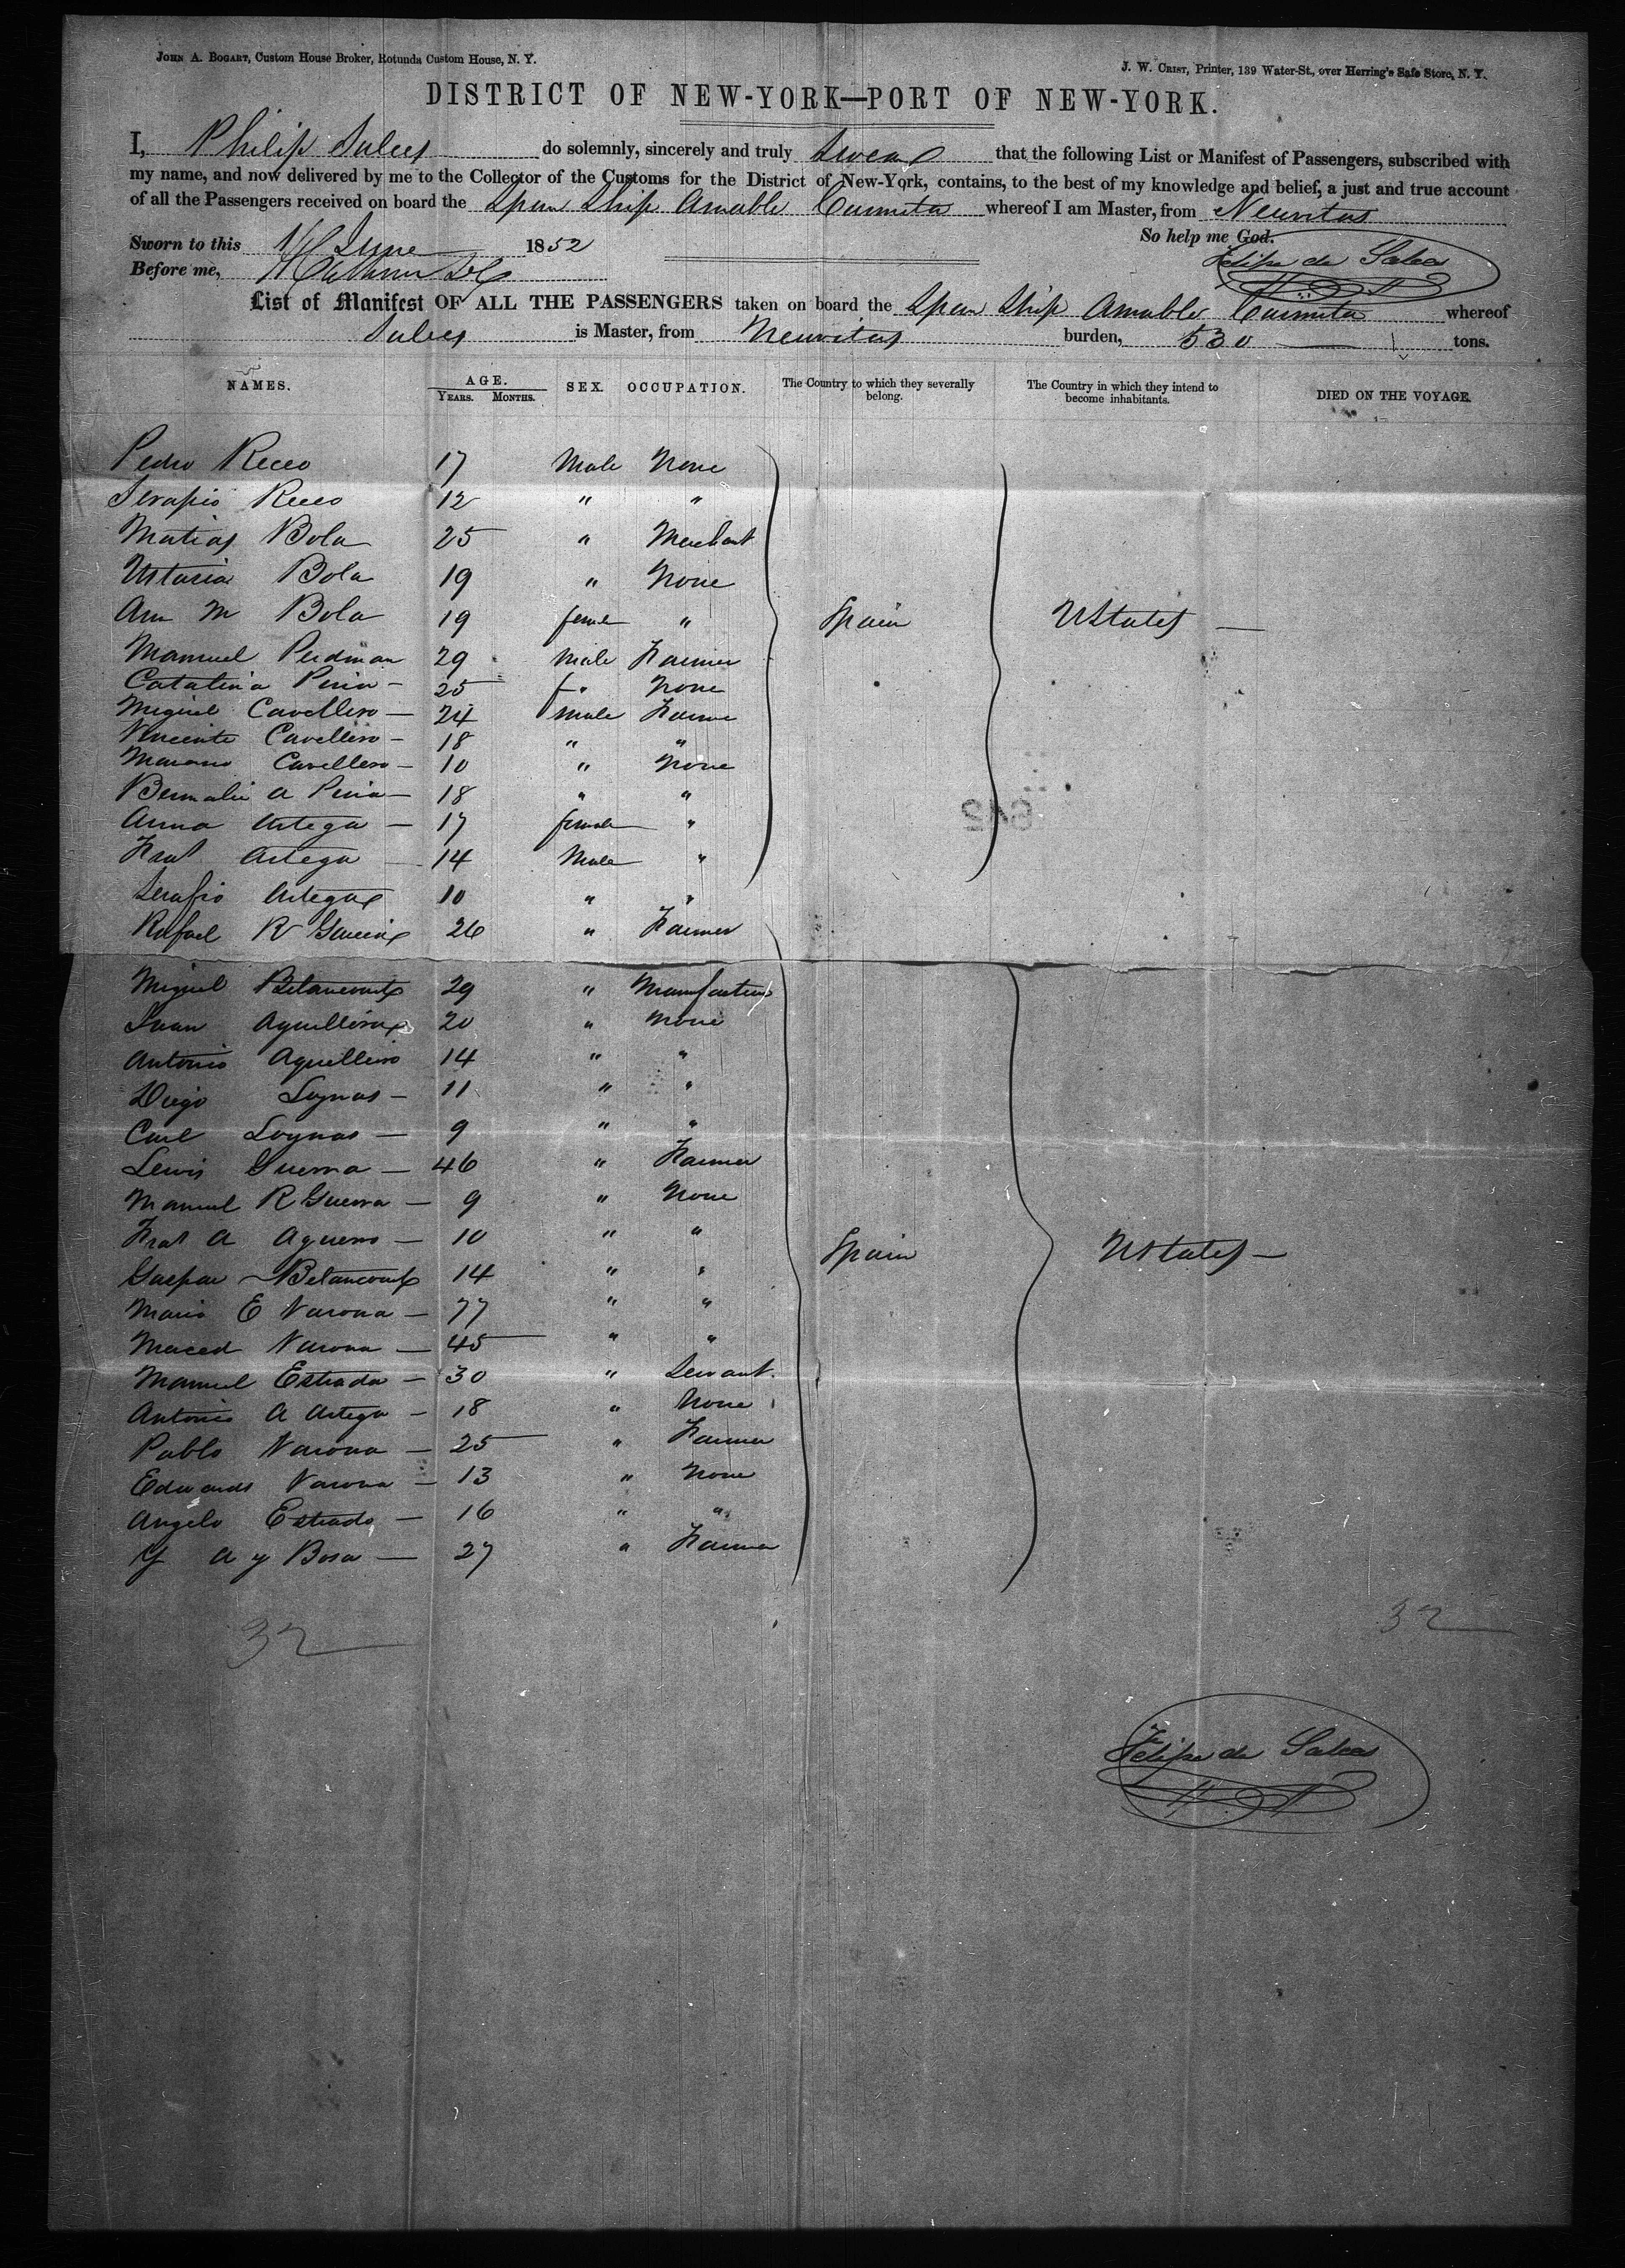 JOHN A. BOGART, Custom House Broker, Rotunda Custom House, N. Y.
J. W. CRIST, Printer, 139 Water-St., over Herring's Safe Store, N. Y.
DISTRICT OF NEW-YORK—PORT OF NEW-YORK.
I, Philip Sulees do solemnly, sincerely and truly Swear that the following List or Manifest of Passengers, subscribed with
my name, and now delivered by me to the Collector of the Customs for the District of New-York, contains, to the best of my knowledge and belief, a just and true account
of all the Passengers received on board the Span Ship Amable Carmita whereof I am Master, from Neuvitas
So help me God.
Sworn to this June 1852
Felipe de Salees
Before me,
List of Manifest OF ALL THE PASSENGERS taken on board the Span Ship Amable Carmita whereof
Sulees is Master, from Neuvitas burden, 530 — tons.
NAMES. AGE. YEARS. MONTHS. SEX. OCCUPATION. The Country to which they severally belong. The Country in which they intend to become inhabitants. DIED ON THE VOYAGE.
Pedro Receo 17 Male None
Serapio Receo 12 " "
Matias Bola 25 " Merchant
Ustaria Bola 19 " None
Ann M Bola 19 female " Spain UStates —
Manuel Perdman 29 Male Farmer
Catalina Pina — 25 f " None
Miguel Cavellero — 24 Male Farme
Vincente Cavellero — 18 " "
Mariano Cavellero — 10 " None
Bernalie A Pina — 18 " "
Anna Artega — 17 female "
Frat Artega — 14 Male "
Serafio Artega 10 " "
Rafael R Garcia 26 " Farmer
Miguel Betancourt 29 " Manufacturer
Juan Aquellera 20 " None
Antonio Aquellero 14 " "
Diego Loynas — 11 " "
Carl Loynas — 9 " "
Lewis Guerra — 46 " Farmer
Manuel R Guerra — 9 " None
Frat A Aguero — 10 " " Spain UStates —
Gaspar Betancourt 14 " "
Maria E Varona — 77 " "
Merced Varona — 45 " "
Manuel Estrada — 30 " Servant
Antonio A Artega — 18 " None
Pablo Varona — 25 " Farmer
Edwards Varona — 13 " None
Angelo Estrado — 16 " "
Y A y Bosa — 27 " Farmer
32 32
Felipe de Salees